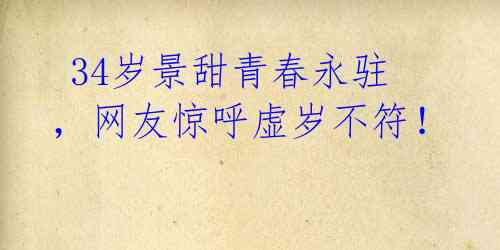 34岁景甜青春永驻
，网友惊呼虚岁不符！